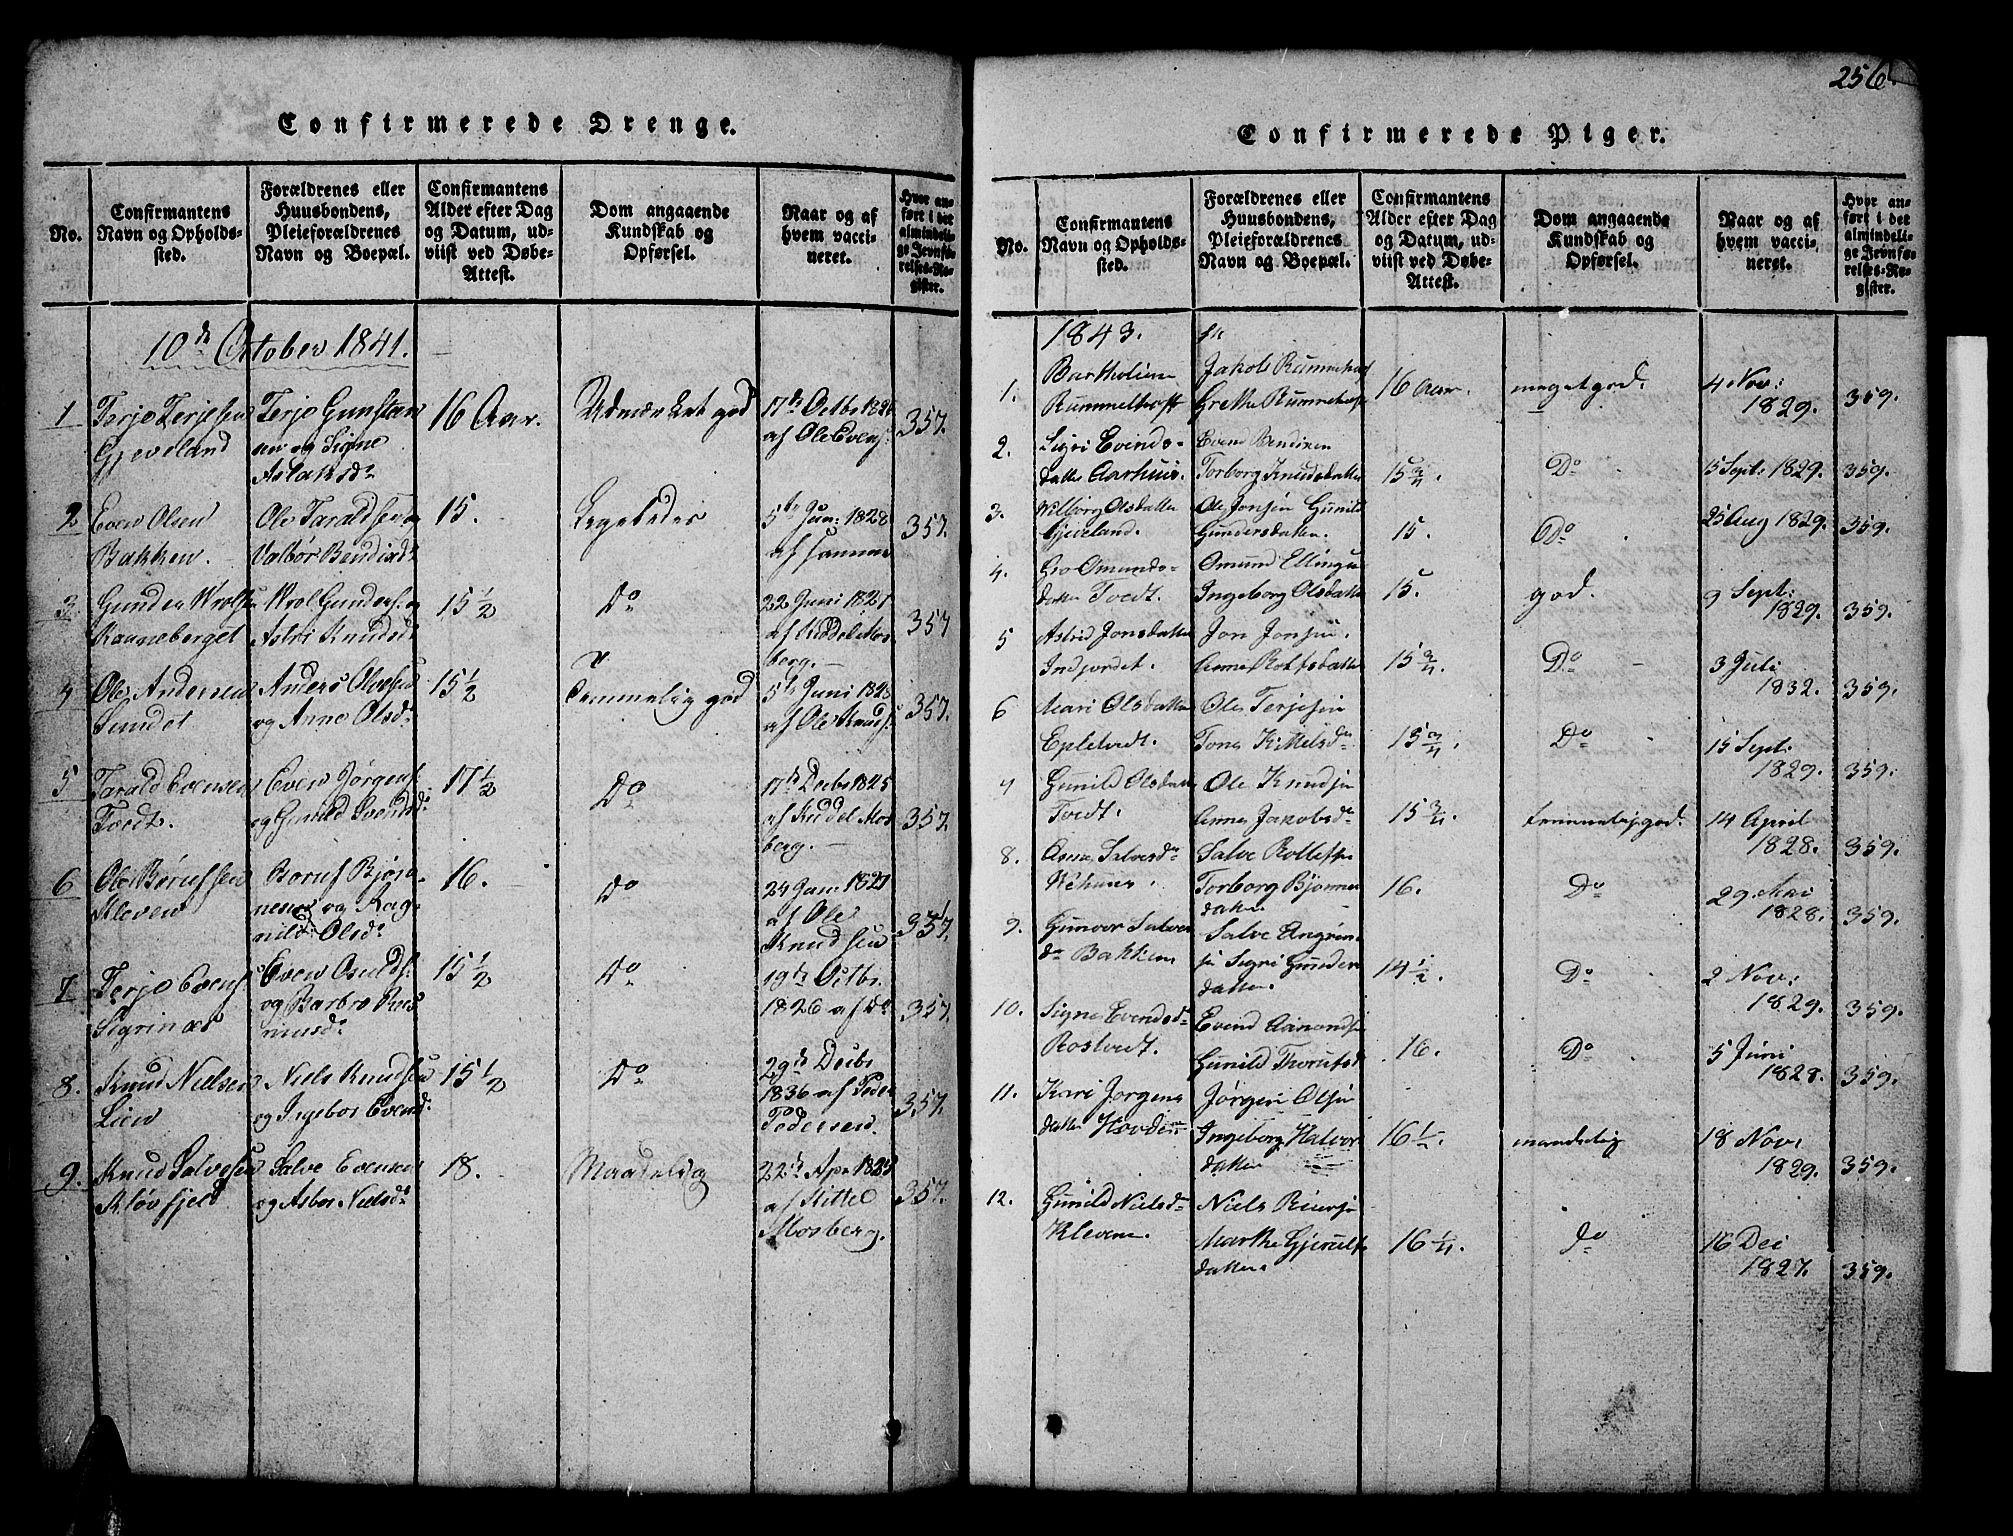 256.
Confirmerede Drenge.
No.
Confirmantens
Navn og Opholds-
sted.
Forældrenes eller
Huusbondens,
Pleieforældrenes
Navn og Boepæl.
Confirmantens
Alder efter Dag
og Datum, ud-
viist ved Døbe-
Attest.
Dom angaaende
Kundskab og
Opførsel.
Naar og af
hvem vacci-
neret.
Hvor an-
ført i det
almindeli-
ge Jevnfø-
relses-Re-
gister.
10de October 1841.
1
Terje Terjesen
Gjeveland
Terje Gunsten
sen og Signe
Aslaksdr
16 Aar.
Udmærket god
17de Octbr 1826
af Ole Evens.
357.
2
Even Olsen
Bakken.
Ole Taraldsen og
15.
Ligeledes
5te Jun: 1828
af samme
357.
3
Gunder Wrolsen
Wrol Gunders. og
Astri Knudsd.
15 1/2
Do
22 Juni 1827
berg.
357
4
Ole Andersen
Sundet
Anders Olsen
og Anne Olsdr
15 1/2
Temmelig god
5te Juni 1828
af Ole Knuds.
357.
5
Tarald Evensen
Tvedt.
Even Jørgens.
og Gunild Svendsd.
17 1/2
Do
17de Decbr 1825
berg.
357.
6
Kleven
og Rag-
nild Olsdr
16.
Do
24 Jan: 1827
af Ole
Knudsen
357.
7
Terje Evens.
Sigrinæs
Even Osulds.
og Barbro Ras
musdr
15 1/2
Do
19de Octbr.
1826 af Do
357.
8.
Knud Nielsen
Lien
Niels Knudsen
og Ingebor Evend.
15 1/2
Do
29de Decbr
1836 af Peder
Pedersen.
357.
9.
Knud Salvesen
Kløvfjeld
Salve Evensen
og Asbor Nielsdr
18.
Maadelig
22de Apr. 1825
af Kittel
Mosberg.
357.
Confirmerede Piger.
No.
Confirmantens
Navn og Opholds-
sted.
Forældrenes eller
Huusbondens,
Pleieforældrenes
Navn og Boepæl.
Confirmantens
Alder efter Dag
og Datum, ud-
viist ved Døbe-
Attest.
Dom angaaende
Kundskab og
Opførsel.
Naar og af
hvem vacci-
neret.
Hvor an-
ført i det
almindeli-
ge Jevnfø-
relses-Re-
gister.
1843.
1.
Rummelhoff
Jakob Rummelhof
Grethe Rummelhof
16 Aar.
meget god.
4 Nov:
1829.
359.
2.
Sigri Evends-
datter Aarhuus.
Evend Bendixen
Torborg Knudsdatter
15 3/4.
Do
15 Sept: 1829.
359.
3.
Wilborg Olsdatter
Gjeveland.
Ole Jonsen Gunild
Gundersdatter.
15.
Do
25 Aug 1829.
359.
4.
Gro Omunds-
datter Tvedt.
Omund Ellingsen
Ingeborg Olsdatter
15.
god.
9 Sept:
1829.
359.
5
Astrid Jonsdatter
Indjordet.
Jon Jonsen.
Anne Rolfsdatter
15 3/4.
Do
3 Juli
1832.
359.
6
Mari Olsdatter
Epletvedt.
Ole Terjesen
Tone Kittelsdr
15 3/4.
Do
15 Sept:
1829.
359.
7
Gunild Olsdatter
Tvedt.
Ole Knudsen
Anne Jakobsdr
15 3/4.
temmelig god.
14 April
1828.
359.
8.
Salve
Torborg Bjønnes
datter
16.
Do
29 Mai
1828.
359.
9.
Gunvor Salves
dr Bakken
Salve
Sigri Gunders
datter.
14 1/2.
Do
2 Nov:
1829.
359.
10.
Signe Evendsdr
Rostvedt.
Evend Aamundsen
Gunild
16.
Do
5 Juni
1828.
359.
11.
Kari Jørgens
datter Hovden
Jørgen Olsen
Ingeborg Halvor
datter
maadelig
18 Nov:
1829.
359.
12.
Gunild Nielsdr
Klevene.
Niels
Marthe
datter.
16 1/4.
do
16 Dec
1827.
359.